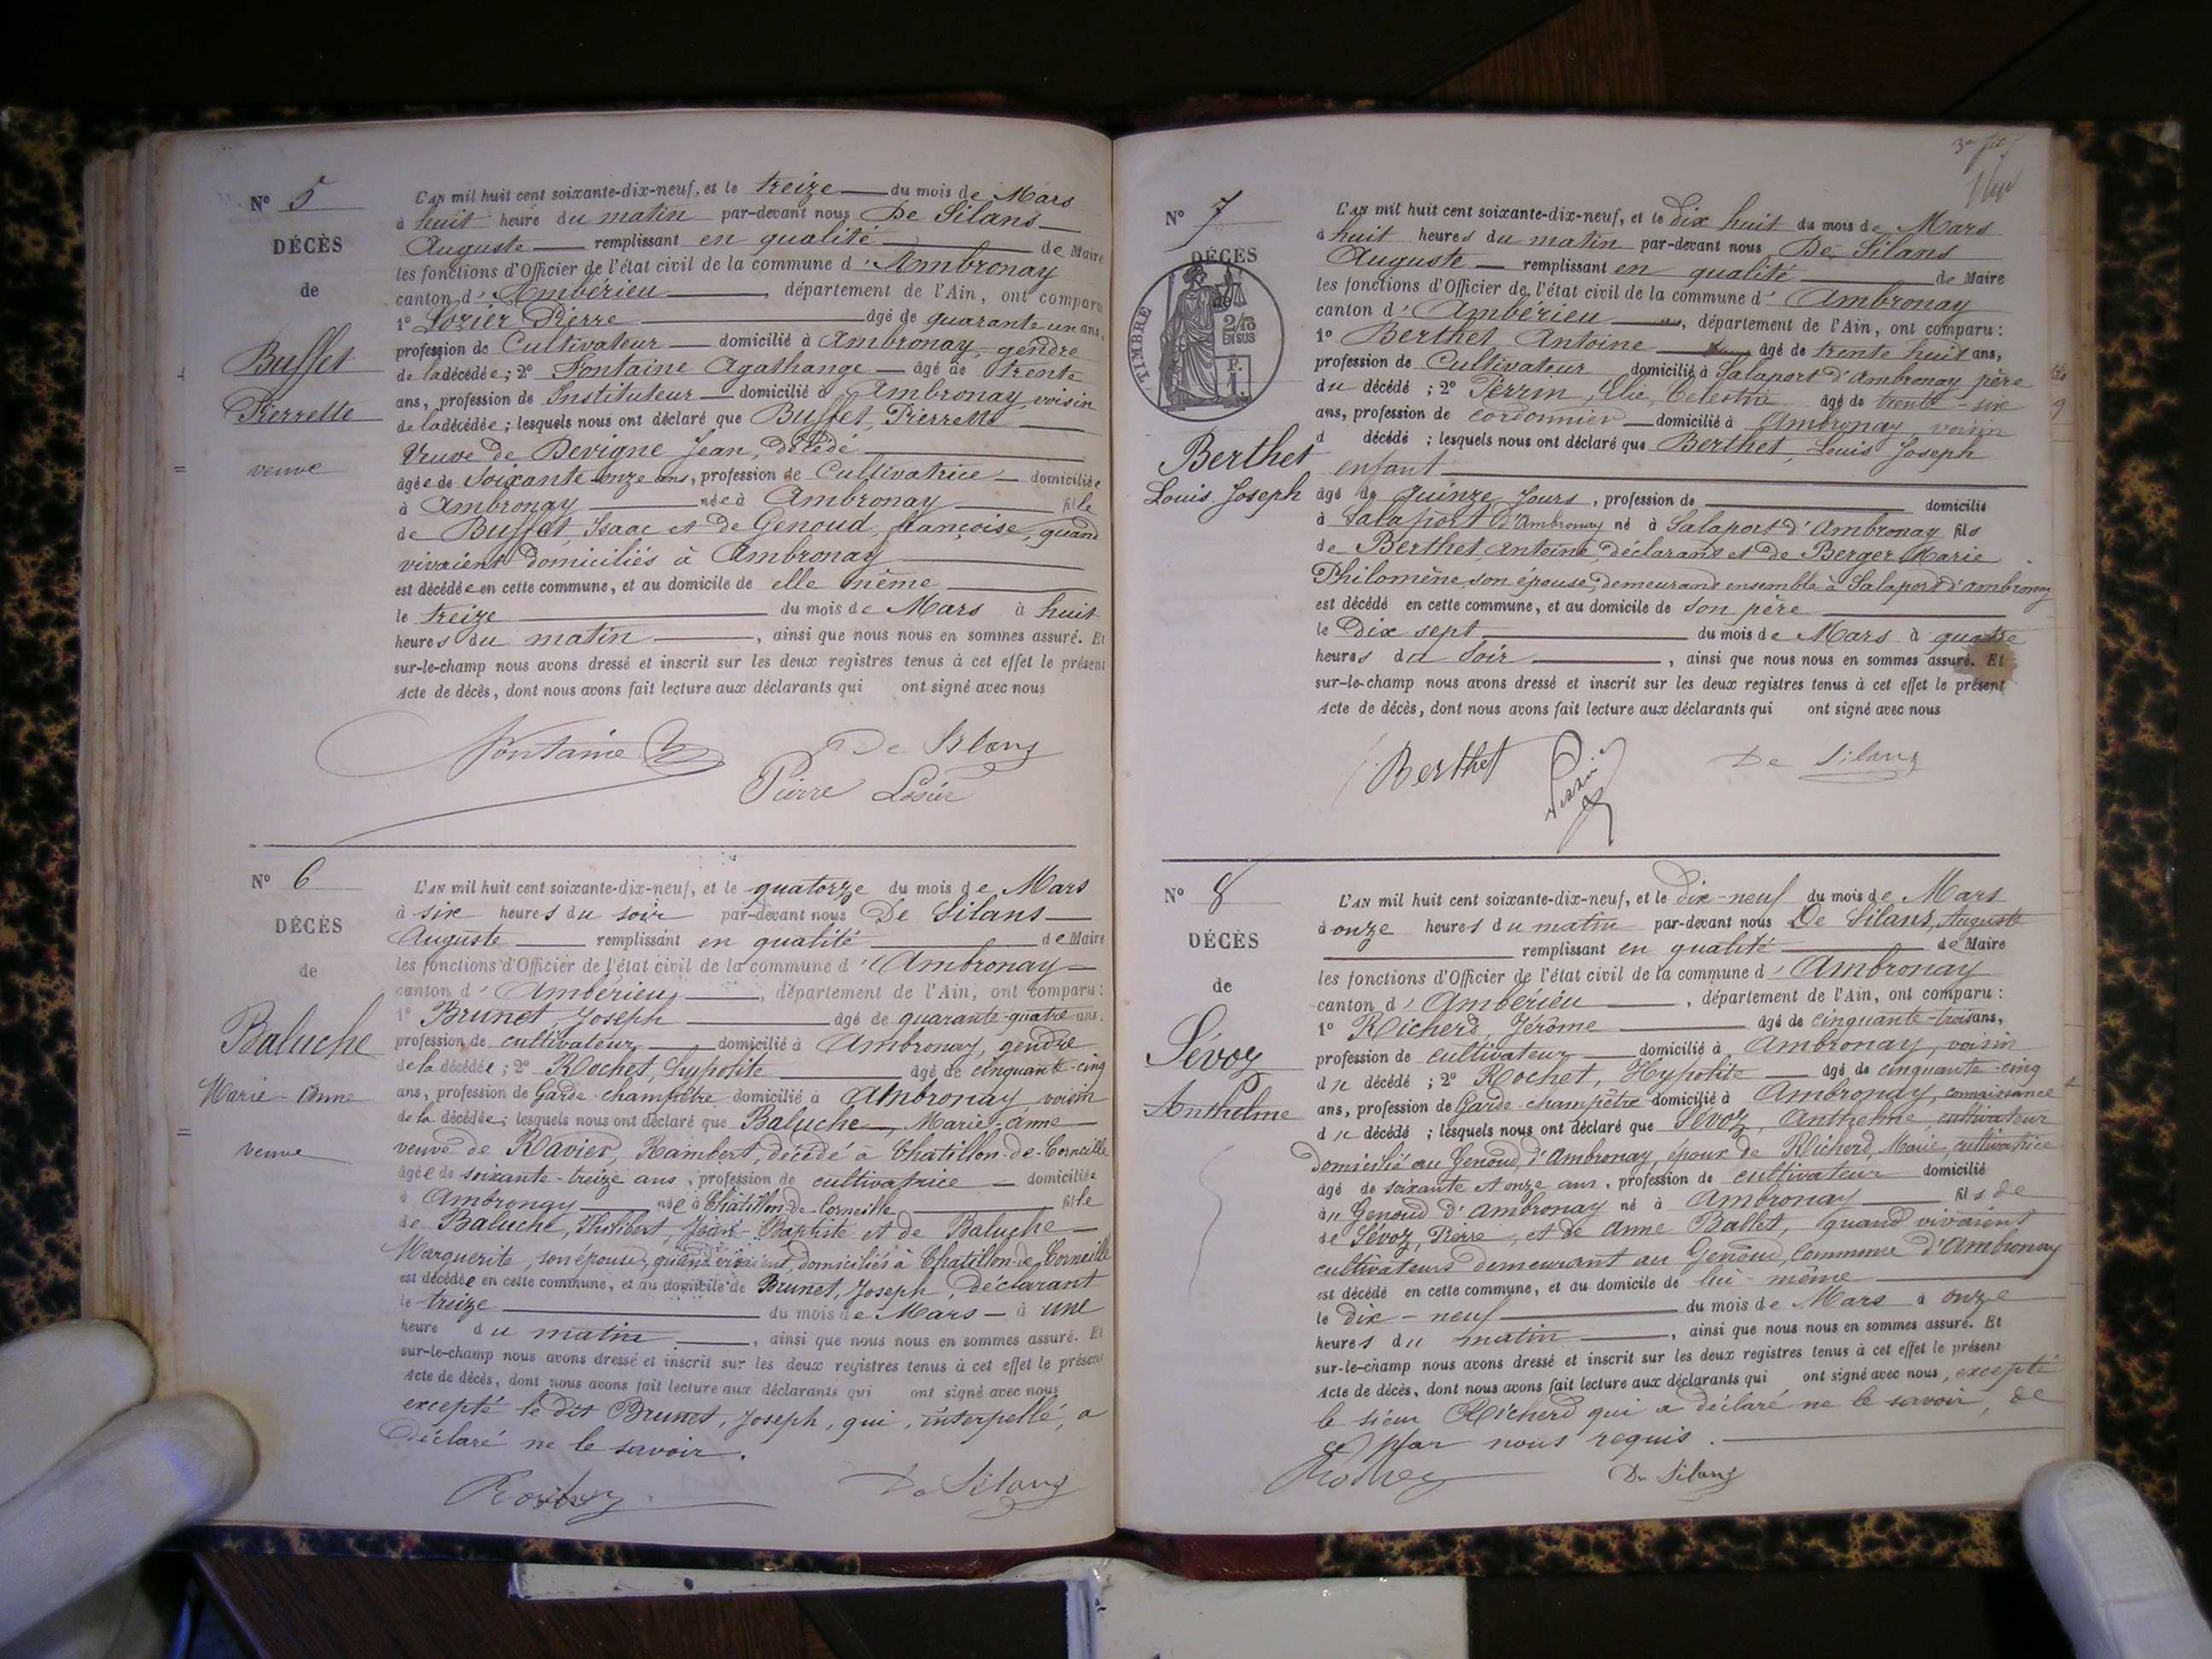 N° 5
DÉCÈS
de
Buffet
Pierrette
veuve
L'AN mil huit cent soixante-dix-neuf, et le treize du mois de Mars
à huit heure du matin par-devant nous De Silans
Auguste remplissant en qualité de Maire
les fonctions d'Officier de l'état civil de la commune d'Ambronay
canton d'Ambérieu, département de l'Ain, ont comparu
1° Lozier Pierre âgé de quarante un ans,
profession de Cultivateur domicilié à Ambronay, gendre
de la décédée ; 2° Fontaine Agathange âgé de trente
ans, profession de Instituteur domicilié à Ambronay voisin
de la décédée ; lesquels nous ont déclaré que Buffet, Pierrette
Veuve de Devigne Jean, décédé
âgée de Soixante-onze ans, profession de Cultivatrice domiciliée
à Ambronay née à Ambronay fille
de Buffet, Isaac et de Genoud, françoise, quand
vivaient domiciliés à Ambronay
est décédée en cette commune, et au domicile de elle même
le treize du mois de Mars à huit
heures du matin, ainsi que nous nous en sommes assuré. Et
sur-le-champ nous avons dressé et inscrit sur les deux registres tenus à cet effet le présent
Acte de décès, dont nous avons fait lecture aux déclarants qui ont signé avec nous
Fontaine De Silans
Pierre Losier
N° 6
DÉCÈS
de
Baluche
Marie-Anne
veuve
L'AN mil huit cent soixante-dix-neuf, et le quatorze du mois de Mars
à six heures du soir par-devant nous De Silans
Auguste remplissant en qualité de Maire
les fonctions d'Officier de l'état civil de la commune d'Ambronay
canton d'Ambérieu, département de l'Ain, ont comparu :
1° Brunet Joseph âgé de quarante-quatre ans,
profession de cultivateur domicilié à Ambronay, gendre
de la décédée ; 2° Rochet, hypolite âgé de cinquante-cinq
ans, profession de Garde-champêtre domicilié à Ambronay voisin
de la décédée ; lesquels nous ont déclaré que Baluche, Marie-Anne
veuve de Ravier, Rambert, décédé à Chatillon-de-Corneille
âgée de soixante-treize ans, profession de cultivatrice domiciliée
à Ambronay née à Chatillon-de-Corneille fille
de Baluche, Philibert, Jean-Baptiste et de Baluche
Marguerite, son épouse, quand vivaient, domiciliés à Chatillon-de-Corneille
est décédée en cette commune, et au domicile de Brunet, Joseph, déclarant
le treize du mois de Mars à une
heure du matin, ainsi que nous nous en sommes assuré. Et
sur-le-champ nous avons dressé et inscrit sur les deux registres tenus à cet effet le présent
Acte de décès, dont nous avons fait lecture aux déclarants qui ont signé avec nous
excepté le dit Brunet, Joseph, qui, interpellé, a
déclaré ne le savoir.
De Silans
N° 7
DÉCÈS
de
TIMBRE
2/10
EN SUS
Berthet
Louis Joseph
L'AN mil huit cent soixante-dix-neuf, et le dix huit du mois de Mars
à huit heures du matin par-devant nous De Silans
Auguste remplissant en qualité de Maire
les fonctions d'Officier de l'état civil de la commune d'Ambronay
canton d'Ambérieu, département de l'Ain, ont comparu :
1° Berthet Antoine âgé de trente huit ans,
profession de Cultivateur domicilié à Salaport d'Ambronay père
du décédé ; 2° Perrin, Elie, Celestin âgé de trente-six
ans, profession de cordonnier domicilié à Ambronay voisin
d décédé ; lesquels nous ont déclaré que Berthet, Louis Joseph
enfant
âgé de Quinze Jours, profession de domicilié
à Salaport d'Ambronay né à Salaport d'Ambronay fils
de Berthet, Antoine, déclarant et de Berger Marie
Philomène son épouse, demeurant ensemble à Salaport d'Ambronay
est décédé en cette commune, et au domicile de Son père
le Dix sept du mois de Mars à quatre
heures du Soir, ainsi que nous nous en sommes assuré. Et
sur-le-champ nous avons dressé et inscrit sur les deux registres tenus à cet effet le présent
Acte de décès, dont nous avons fait lecture aux déclarants qui ont signé avec nous
Berthet Perrin De Silans
N° 8
DÉCÈS
de
Sévoz
Anthelme
L'AN mil huit cent soixante-dix-neuf, et le dix-neuf du mois de Mars
à onze heures du matin par-devant nous De Silans, Auguste
remplissant en qualité de Maire
les fonctions d'Officier de l'état civil de la commune d'Ambronay
canton d'Ambérieu, département de l'Ain, ont comparu :
1° Richerd, Jérôme âgé de cinquante-trois ans,
profession de cultivateur domicilié à Ambronay, voisin
du décédé ; 2° Rochet, Hypolite âgé de cinquante-cinq
ans, profession de Garde-champêtre domicilié à Ambronay, connaissance
du décédé ; lesquels nous ont déclaré que Sévoz, Anthelme, cultivateur
domicilié au Genoud, d'Ambronay, époux de Richerd, Marie, cultivatrice
âgé de soixante et onze ans, profession de cultivateur domicilié
au Genoud d'Ambronay né à Ambronay fils de
de Sévoz, Pierre, et de Anne Ballet, quand vivaient
cultivateurs demeurant au Genoud, Commune d'Ambronay
est décédé en cette commune, et au domicile de lui-même
le dix-neuf du mois de Mars à onze
heures du matin, ainsi que nous nous en sommes assuré. Et
sur-le-champ nous avons dressé et inscrit sur les deux registres tenus à cet effet le présent
Acte de décès, dont nous avons fait lecture aux déclarants qui ont signé avec nous, excepté
le sieur Richerd qui a déclaré ne le savoir, de
ce par nous requis.
Rochet De Silans